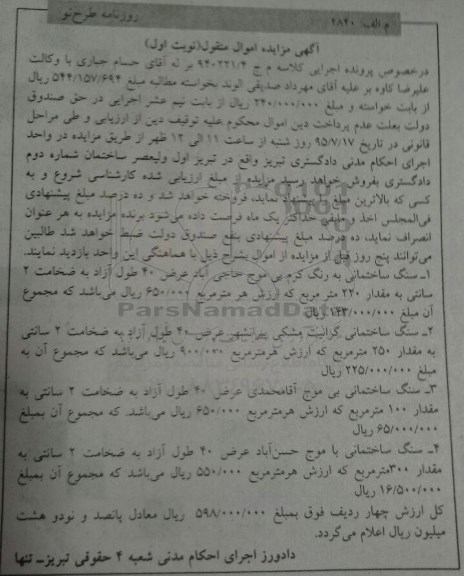 روزنامه طرح نو
م الف: ۲۸۴۰
آگهی مزایده اموال منقول(نوبت اول)
درخصوص پرونده اجرایی کلاسه م ج ۹۴۰۲۲۱/۴ بر له آقای حسام جباری با وکالت
علیرضا کاوه بر علیه آقای مهرداد صدیقی الوند بخواسته مطالبه مبلغ ۵۴۴/۱۵۷/۶۹۴ ریال
از بابت خواسته و مبلغ ۲۴۰/۰۰۰/۰۰۰ ریال از بابت نیم عشر اجرایی در حق صندوق
دولت بعلت عدم پرداخت دین اموال محکوم علیه توقیف دین از ارزیابی و طی مراحل
قانونی در تاریخ ۹۵/۷/۱۷ روز شنبه از ساعت ۱۱ الی ۱۲ ظهر از طریق مزایده در واحد
اجرای احکام مدنی دادگستری تبریز واقع در تبریز اول ولیعصر ساختمان شماره دوم
دادگستری بفروش خواهد رسید مزایده از مبلغ ارزیابی شده کارشناسی شروع و به
کسی که بالاترین مبلغ را پیشنهاد نماید، فروخته خواهد شد و ده درصد مبلغ پیشنهادی
فی‌المجلس اخذ و مابقی حداکثر یک ماه فرصت داده می‌شود برنده مزایده به هر عنوان
انصراف نماید، ده درصد مبلغ پیشنهادی بنفع صندوق دولت ضبط خواهد شد طالبین
می‌توانند پنج روز قبل از مزایده از اموال بشرح ذیل با هماهنگی این واحد بازدید نمایند.
۱ـ سنگ ساختمانی به رنگ کرم بی موج حاجی آباد عرض ۴۰ طول آزاد به ضخامت ۲
سانتی به مقدار ۲۲۰ متر مربع که ارزش هر مترمربع ۶۵۰/۰۰۰ ریال می‌باشد که مجموع
آن مبلغ ۱۴۳/۰۰۰/۰۰۰ ریال
ParsNamadData
۲ـ سنگ ساختمانی گرانیت مشکی پیرانشهر عرض ۴۰ طول آزاد به ضخامت ۲ سانتی
به مقدار ۲۵۰ مترمربع که ارزش هرمترمربع ۹۰۰/۰۰۰ ریال می‌باشد که مجموع آن به
مبلغ ۲۲۵/۰۰۰/۰۰۰ ریال
۳ـ سنگ ساختمانی بی موج آقامحمدی عرض ۴۰ طول آزاد به ضخامت ۲ سانتی به
مقدار ۱۰۰ مترمربع که ارزش هرمترمربع ۶۵۰/۰۰۰ ریال می‌باشد. که مجموع آن بمبلغ
۶۵/۰۰۰/۰۰۰ ریال
۴ـ سنگ ساختمانی با موج حسن‌آباد عرض ۴۰ طول آزاد به ضخامت ۲ سانتی به
مقدار ۳۰۰مترمربع که ارزش هرمترمربع ۵۵۰/۰۰۰ ریال می‌باشد که مجموع آن بمبلغ
۱۶/۵۰۰/۰۰۰ ریال
کل ارزش چهار ردیف فوق بمبلغ ۵۹۸/۰۰۰/۰۰۰ ریال معادل پانصد و نودو هشت
میلیون ریال اعلام می‌گردد.
دادورز اجرای احکام مدنی شعبه ۴ حقوقی تبریز ـ تنها